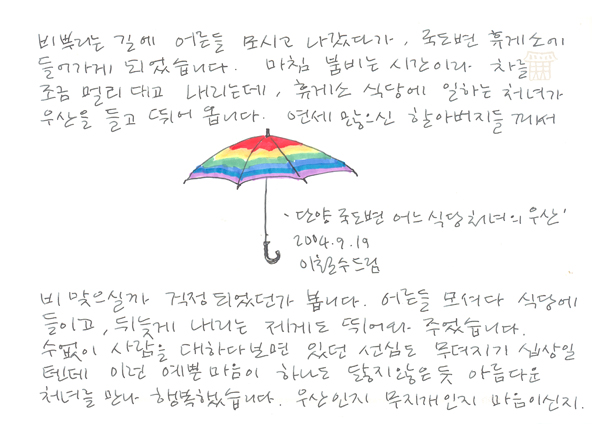 비뿌리는 길에 어른들 모시고 나갔다가, 국도변 휴게소에
들어가게 되었습니다. 마침 붐비는 시간이라 차를
조금 멀리 대고 내리는데, 휴게소 식당에 일하는 처녀가
우산을 들고 뛰어 옵니다. 연세 많으신 할아버지들께서
'단양 국도변 어느 식당 처녀의 우산'
2004.9.19
이철수드림
비 맞으실까 걱정되었던가 봅니다. 어른들 모셔다 식당에
들이고, 뒤늦게 내리는 제게도 뛰어와 주었습니다.
수없이 사람을 대하다보면 있던 선심도 무뎌지기 십상일
텐데 이런 예쁜 마음이 하나도 닳지않은듯 아름다운
처녀를 만나 행복했습니다. 우산인지 무지개인지 마음이신지.